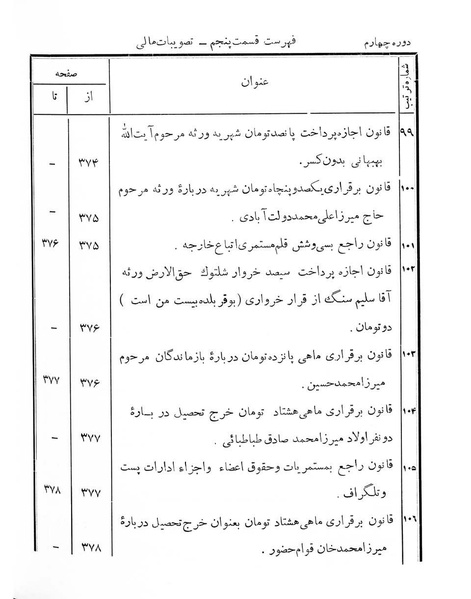 دوره چهارم
فهرست قسمت پنجم – تصویبات مالی
شماره ترتیب
عنوان
صفحه
از
تا
۹۹
قانون اجازه پرداخت پانصد تومان شهریه ورثه مرحوم آیت الله
بهبهانی بدون کسر.
۳۷۴
–
۱۰۰
قانون برقراری یکصد و پنجاه تومان شهریه درباره ورثه مرحوم
حاج میرزا علی محمد دولت آبادی .
۳۷۵
–
۱۰۱
قانون راجع بسی و شش قلم مستمری اتباع خارجه .
۳۷۵
۳۷۶
۱۰۲
قانون اجازه پرداخت سیصد خروار شلتوک حق الارض ورثه
آقا سلیم سنگ از قرار خرواری ( بوقر بلده بیست من است )
دو تومان .
۳۷۶
–
۱۰۳
قانون برقراری ماهی پانزده تومان درباره بازماندگان مرحوم
میرزا محمد حسین .
۳۷۶
۳۷۷
۱۰۴
قانون برقراری ماهی هشتاد تومان خرج تحصیل در باره
دو نفر اولاد میرزا محمد صادق طباطبائی .
۳۷۷
–
۱۰۵
قانون راجع بمستمریات و حقوق اعضاء واجزاء ادارات پست
و تلگراف .
۳۷۷
۳۷۸
۱۰۶
قانون برقراری ماهی هشتاد تومان بعنوان خرج تحصیل درباره
میرزا محمد خان قوام حضور .
۳۷۸
–